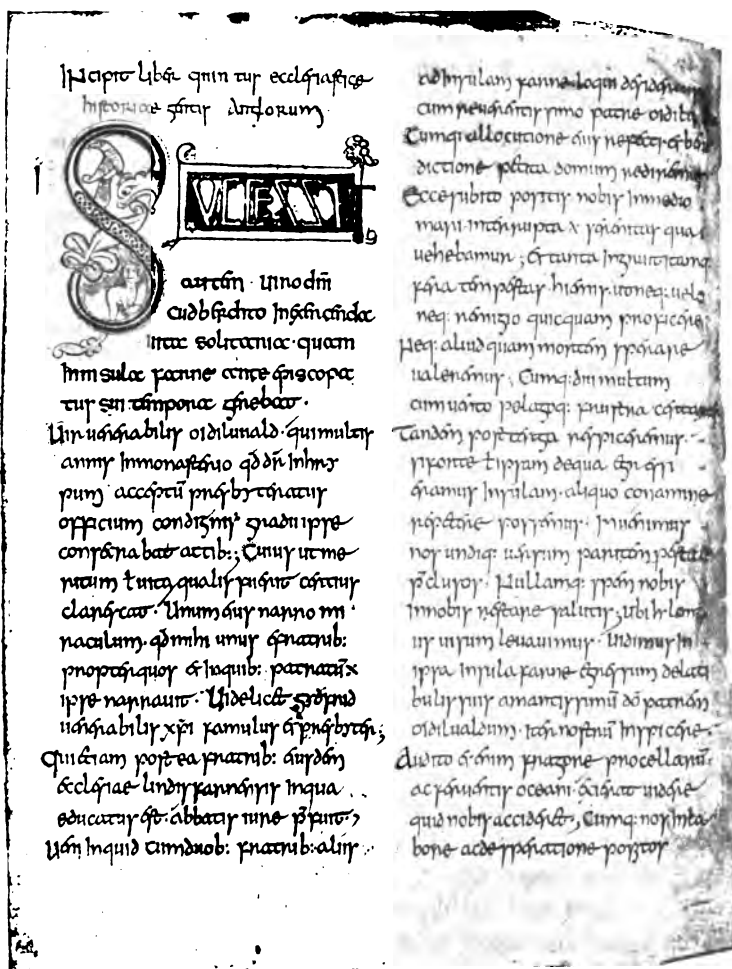 INcipit liber quin tus ecclesiastice
historiae gentis Anglorum
SUCCESSIT
autem · Uiro dni
cudberchto In exercenda
uitae solitaria · quam
In insulae farne ante episcopa
tus sui tempora gerebat ·
Uir uenerabilis oidiluuald · qui multis
annis In monasterio qd dr Inhry
pum · acceptu presbyteratus
officium condignis gradu ipse
consecrabat actib: ; Cuius ut me
ritum ł uita qualis fuerit certius
clarescat · Unum eius narro mi
raculum · qd mihi unus e fratrib:
propter quos & In quib: patratu x
ipse narrauit · Uidelicet gudfrid
uenerabilis xpi famulus & presbyter;
Qui etiam postea fratrib: eiusdem
ecclesiae lindisfarnensis In qua
educatus est · abbatis iure p̄fuit;
Ueni Inquid cum duob: fratrib: aliis
ad Insulam farne loqui desiderans
cum reuerentissimo patre oidilu
Cumq: allocutione eius refecti & bene
dictione petita domum rediremus
Ecce subito positis nobis In medio
mari Interrupta x serenitas qua
uehebamur; & tanta Ingruit tamq:
fera tempestas hiemis ut neq: uelo
neq: remigio quicquam proficere
Neq: aliud quam mortem sperare
ualeremus; Cumq: diu multum
cum uento pelagoq: frustra certan
Tandem post terga respiceremus ·
si forte ł ipsam de qua egressi
eramus Insulam · aliquo conamine
repetere possemus · Inuenimus
nos undiq: uersum pari tempestate
p̄clusos · Nullamq: spem nobis
In nobis restare salutis; ubi h longi
us uisum leuauimus · Uidimus In
ipsa Insula farne egressum de lati
bulis suis amantissimu do patrem
oidiluualdum · iter nostru Inspicere ·
Audito etenim fragore procellaru
ac feruentis oceani · exierat uidere
quid nobis accideret; Cumq: nos In la
bore ac desperatione positos